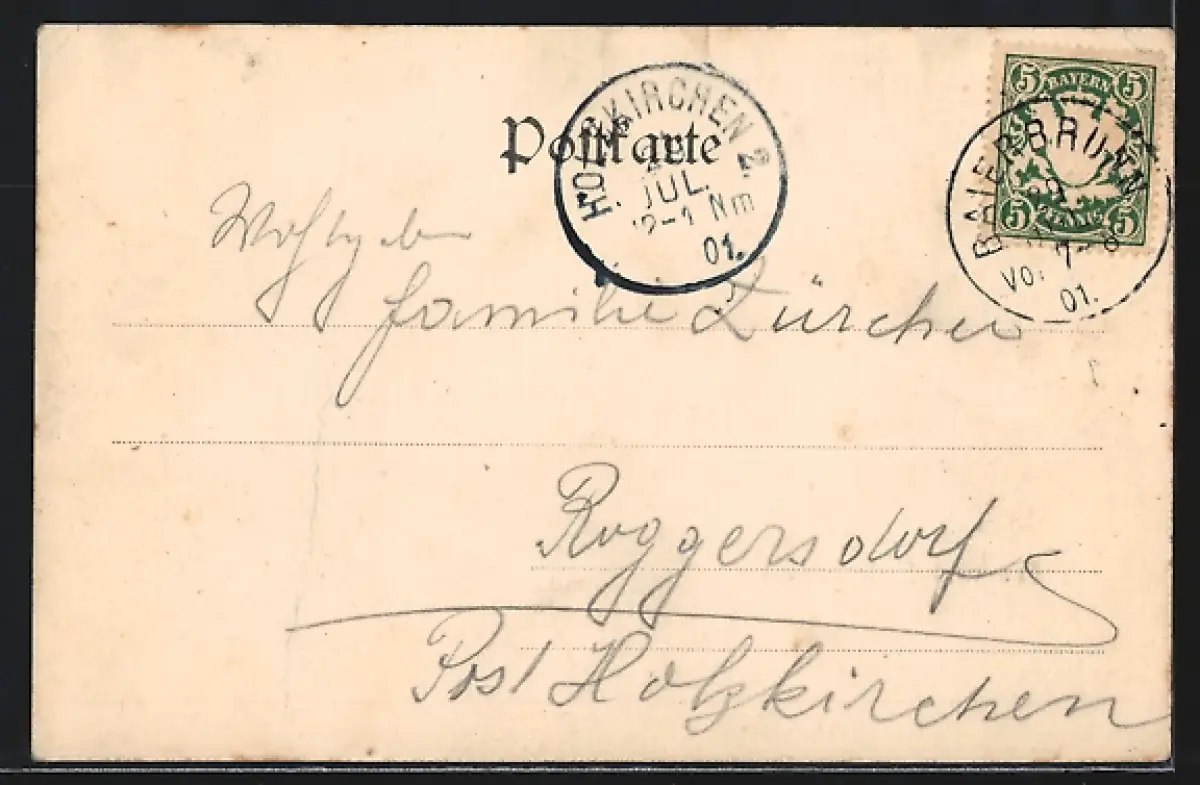 5 BAYERN 5
5 PFENNIG 5
BAIERBRUNN
Vor 7-8
01.
HOLZKIRCHEN 2.
JUL.
12-1 Nm
01.
Postkarte
Familie Zürcher
Roggersdorf
Post Holzkirchen